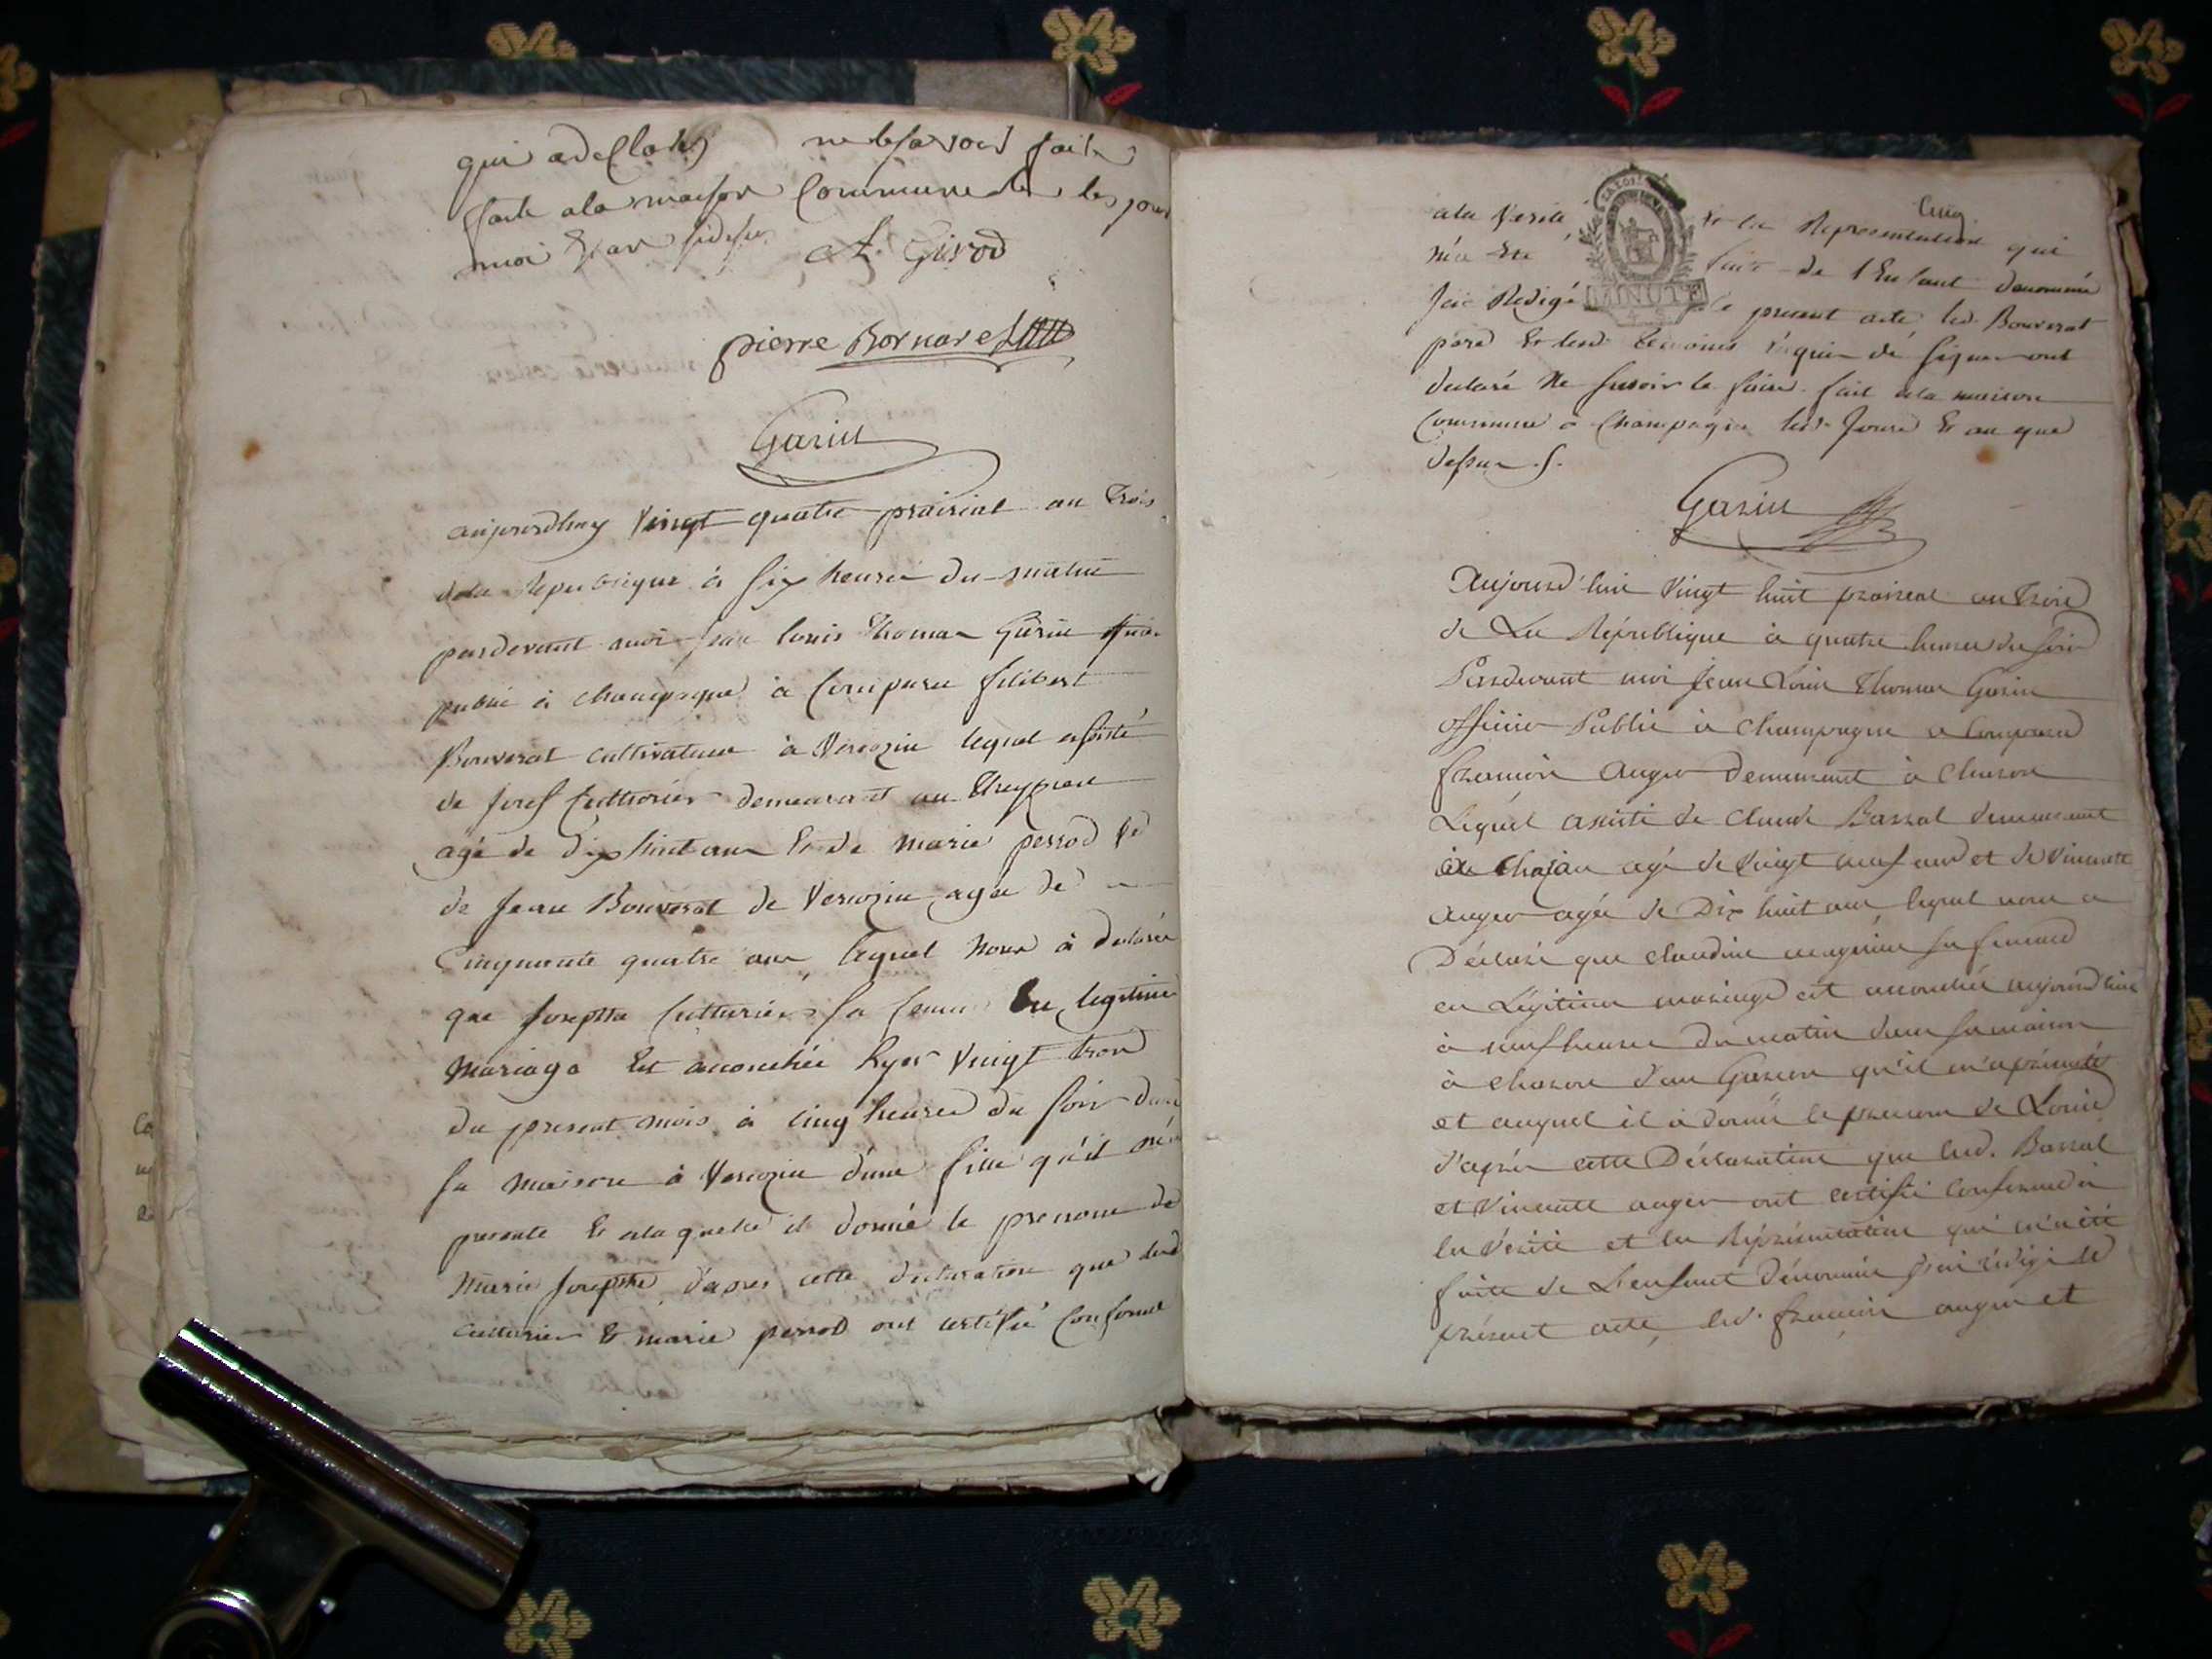 qui a declaré ne le savoir faire
fait a la maison Commune les jour
moi & an
A. Girod
pierre Bornarel
Garin
aujourdhuy Vingt quatre prairial an Trois
de la Republique à six heures du matin
pardevant moi jean louis Thomas Garin
public à champagne à Comparu filibert
Bouverat cultivateur à Vercozin lequel assisté
de josef Cutturier demeurant au
agé de dix huit ans & de marie perrod
de jean Bouverat de Vercozin agée de
Cinquante quatre ans, lequel nous à declaré
que josephte Cutturier sa femme En legitime
mariage Est accouchée hyer Vingt trois
du present mois à cinq heures du soir dans
sa maison à Vercozin d'une fille qu'il m'a
presenté & ala quelle il donné le prenom de
Marie josephte, d'apres cette declaration que led
cutturier & marie perrod ont certifié Conforme
Cinq
ala Verité & la Representation qui
m'a Eté faite de l'Enfant denommé
MINUTE
jai Redigé le present acte, led. Bouverat
pere & lesd temoins réquis de signer ont
declaré Ne savoir le faire. fait ala maison
Commune à Champagne lesd. Jours & an que
dessus
Garin
Aujourd'hui Vingt huit prairial an trois
de La République à quatre heures du soir
Pardevant moi Jean Louis Thomas Garin
officier Public à Champagne a Comparu
françois Auger demeurant à Charon
Lequel assisté de Claude Barral demeurant
agé de vingt neuf ans et de Vincente
Auger agée de Dix huit ans lequel nous a
Déclaré que Claudine sa femme
en Légitime mariage est accouchée aujourd'hui
à neuf heures du matin dans sa maison
à Charon d'un Garson qu'il m'a présenté
et auquel il à donné le prenom de Louis
d'après cette Déclaration que led. Barral
et Vincente auger ont certifié conforme à
la Vérité et la Réprésentation qui m'a été
faite de L'enfant dénommé j'ai rédigé le
présent acte, led. françois auger et